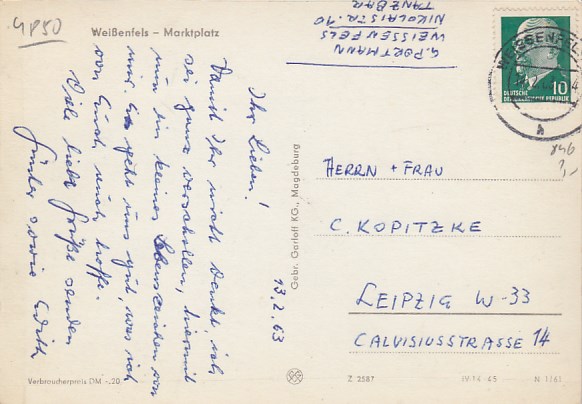 4P50
Weißenfels – Marktplatz
13.2.63
Ihr Lieben!
Damit Ihr nicht denkt, ich
sei ganz verschollen, hiermit
nun ein kleines Lebenszeichen von
mir. Es geht uns gut, was ich
von Euch auch hoffe.
Viele liebe Grüße senden
Günter sowie Edith
Verbraucherpreis DM -.20
Gebr. Garloff KG., Magdeburg
G. PORTMANN
WEISSENFELS
NIKOLAISTR. 10
TANZBAR
WEISSENFEL
10
DEUTSCHE
DEMOKRATISCHE REPUBLIK
HERRN + FRAU
C. KOPITZKE
LEIPZIG W-33
CALVISIUSSTRASSE 14
Z 2587
IV-14-45
N 1/61